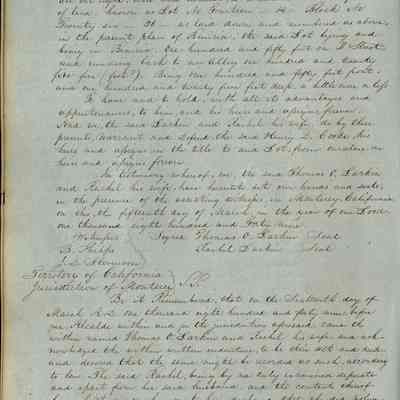 of land known as Lot No Fourteen - 14 - Block No
Twenty six - 26 - as laid down and numbered as above,
in the parent plan of Benicia, the said Lot lying and
being in Benicia, One hundred and fifty feet on I Street
and running back to an alley one hundred and twenty
five feet Being one hundred and fifty feet front,
and one hundred and twenty five feet deep, a little more or less
To have and to hold, with all its advantages and
appurtenances, to him and his heirs and assigns forever.
And we, the said Larkin and Rachel his wife, do by these
presents, warrant and defend the said Henry D. Cooke, his
heirs and assigns in the title to said Lot, from ourselves, our
heirs and assigns forever.
In testimony whereof, we, the said Thomas O. Larkin
and Rachel his wife, have hereunto set our hands and seals,
in the presence of the assisting witnesses, in Monterey, California
on this, the fifteenth day of March, in the year of our Lord
one thousand eight hundred and forty nine.
Witnesses Signed Thomas O. Larkin Seal
B. Phelps Rachel Larkin Seal
J. D. Stevenson
Territory of California
Jurisdiction of Monterey SS.
Be it Remembered, that on the Sixteenth day of
March A.D. one thousand eight hundred and forty nine before
me Alcalde within and in the jurisdiction aforesaid came the
within named Thomas O. Larkin and Rachel his wife and ack-
nowledged the within written indenture, to be their act and deed
and desired that the same might be recorded as such, according
to law. The said Rachel, being by me duly examined separate
and apart from her said husband, and the contents thereof